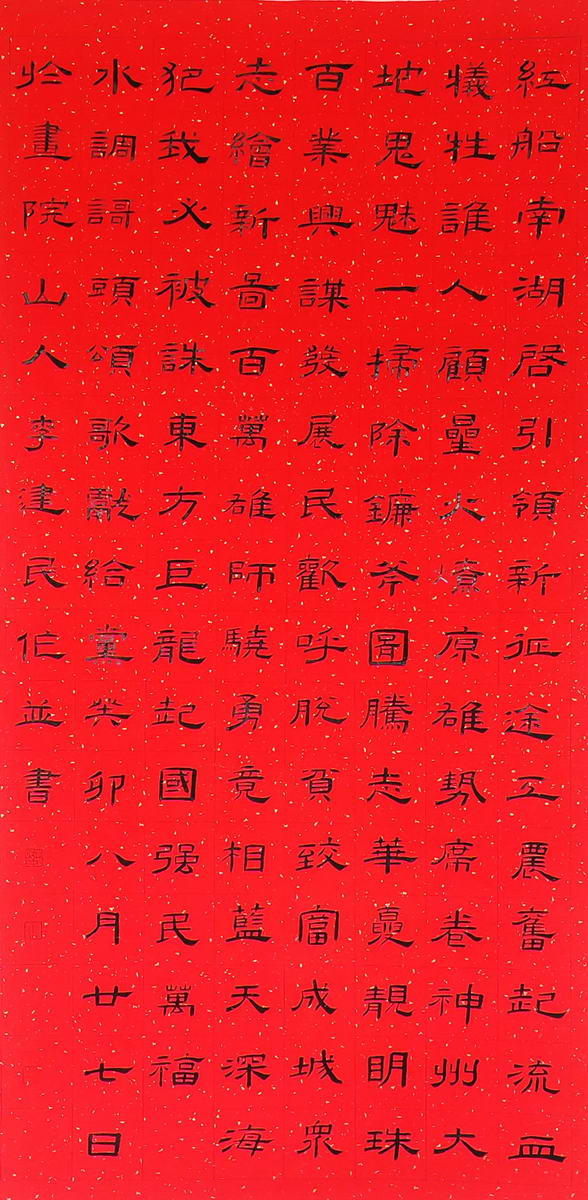 紅船南湖啓引領新征途工農奮起流血
犧牲誰人顧曐火燎原雄勢席卷神州大
地鬼魅一掃除鐮斧圖騰志華夏靚明珠
百業興謀發展民歡呼脫貧致富成城眾
志繪新圖百萬雄師驍勇竟相藍天深海
犯我必被誅東方巨龍起國强民萬福
水調謌頭頌歌獻給黨癸卯八月廿七日
於畫院山人李建民作並書